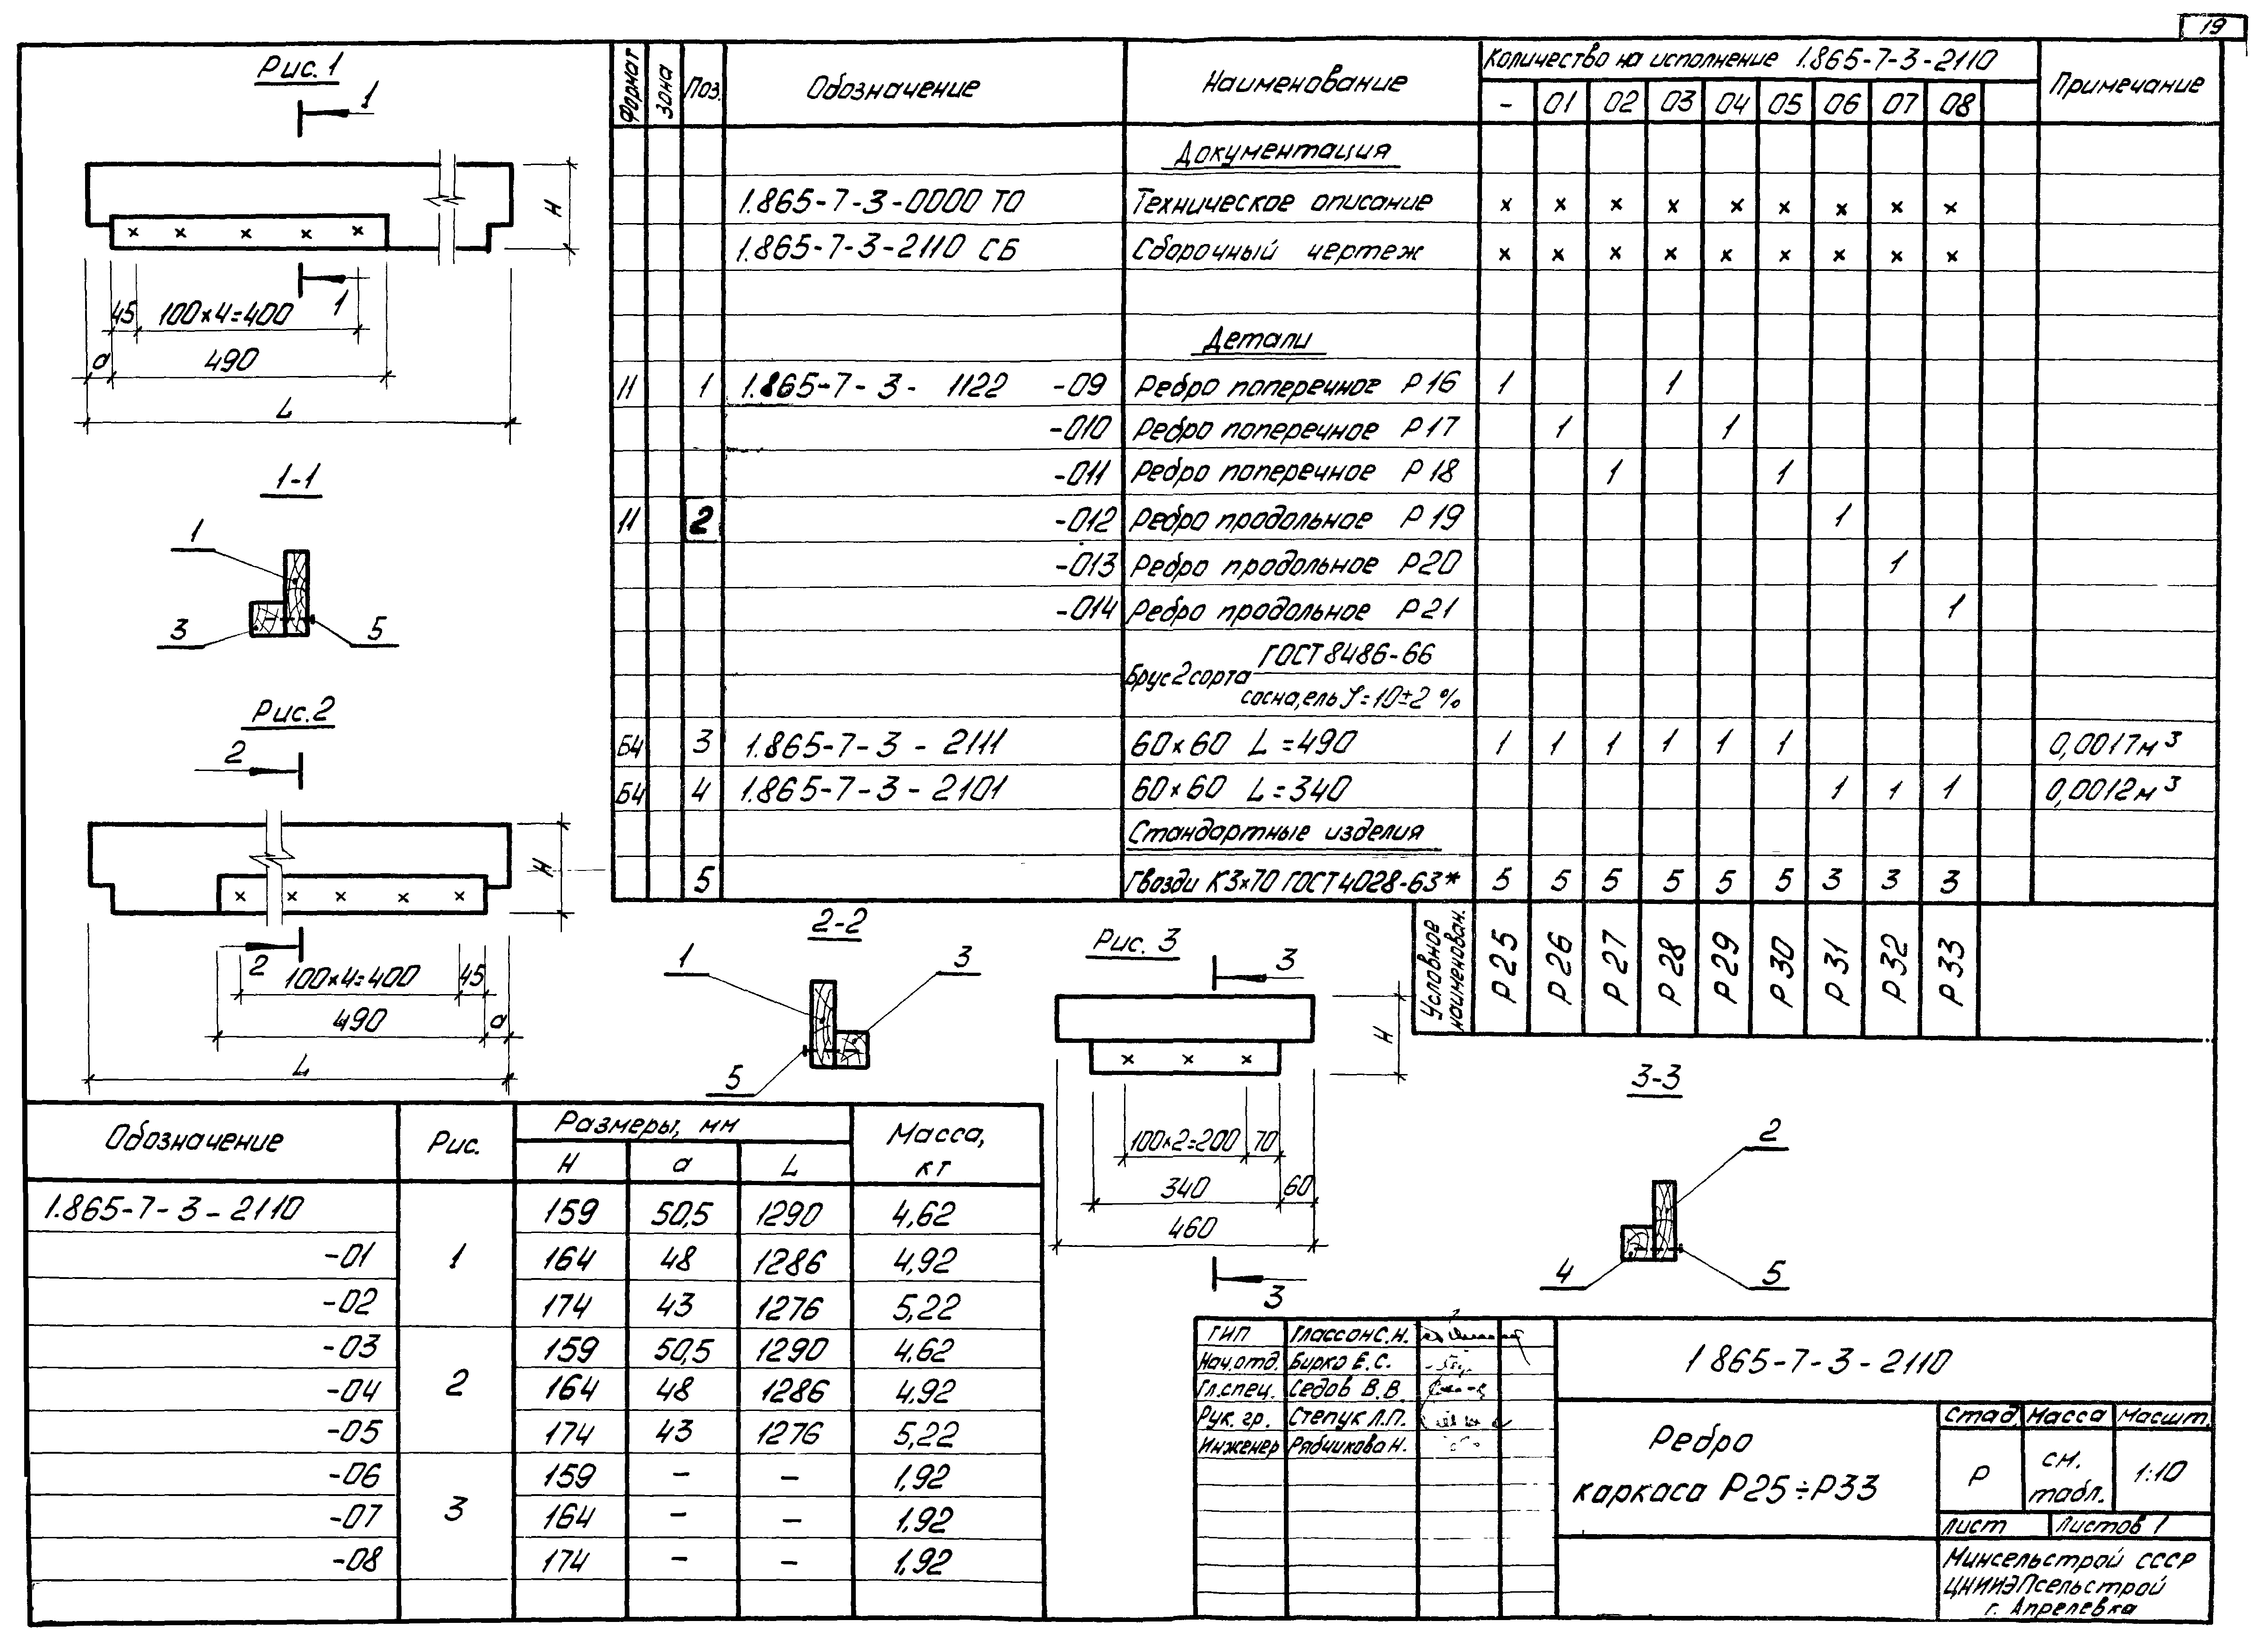 19
Рис.1
1
1
H
45
100×4=400
а
490
L
1-1
1
3
5
Рис.2
2
2
H
100×4=400
45
490
а
L
2-2
1
3
5
Рис. 3
3
3
H
100×2=200
70
340
60
460
3-3
2
4
5
Формат Зона Поз. Обозначение Наименование Количество на исполнение 1.865-7-3-2110 Примечание
- 01 02 03 04 05 06 07 08
Документация
1.865-7-3-0000 ТО Техническое описание × × × × × × × × ×
1.865-7-3-2110 СБ Сборочный чертеж × × × × × × × × ×
Детали
11 1 1.865-7-3- 1122 -09 Ребро поперечное Р16 1 1
-010 Ребро поперечное Р17 1 1
-011 Ребро поперечное Р18 1 1
11 2 -012 Ребро продольное Р19 1
-013 Ребро продольное Р20 1
-014 Ребро продольное Р21 1
Брус 2 сорта ГОСТ 8486-66
сосна, ель φ=10±2 %
Б4 3 1.865-7-3-2111 60×60 L=490 1 1 1 1 1 1 0,0017м³
Б4 4 1.865-7-3-2101 60×60 L=340 1 1 1 0,0012м³
Стандартные изделия
5 Гвозди К3×70 ГОСТ 4028-63* 5 5 5 5 5 5 3 3 3
Условное наименован. Р25 Р26 Р27 Р28 Р29 Р30 Р31 Р32 Р33
Обозначение Рис. Размеры, мм Масса, кг
H а L
1.865-7-3-2110 159 50,5 1290 4,62
-01 1 164 48 1286 4,92
-02 174 43 1276 5,22
-03 159 50,5 1290 4,62
-04 2 164 48 1286 4,92
-05 174 43 1276 5,22
-06 159 - - 1,92
-07 3 164 - - 1,92
-08 174 - - 1,92
ГИП Глассон С.Н.
Нач.отд. Бирко Е.С.
Гл.спец. Седов В.В.
Рук. гр. Степук Л.П.
Инженер Рябчикова Н.
1 865-7-3-2110
Ребро
каркаса Р25÷Р33
Стад Масса Масшт.
Р см. табл. 1:10
Лист Листов 1
Минсельстрой СССР
ЦНИИЭПсельстрой
г. Апрелевка